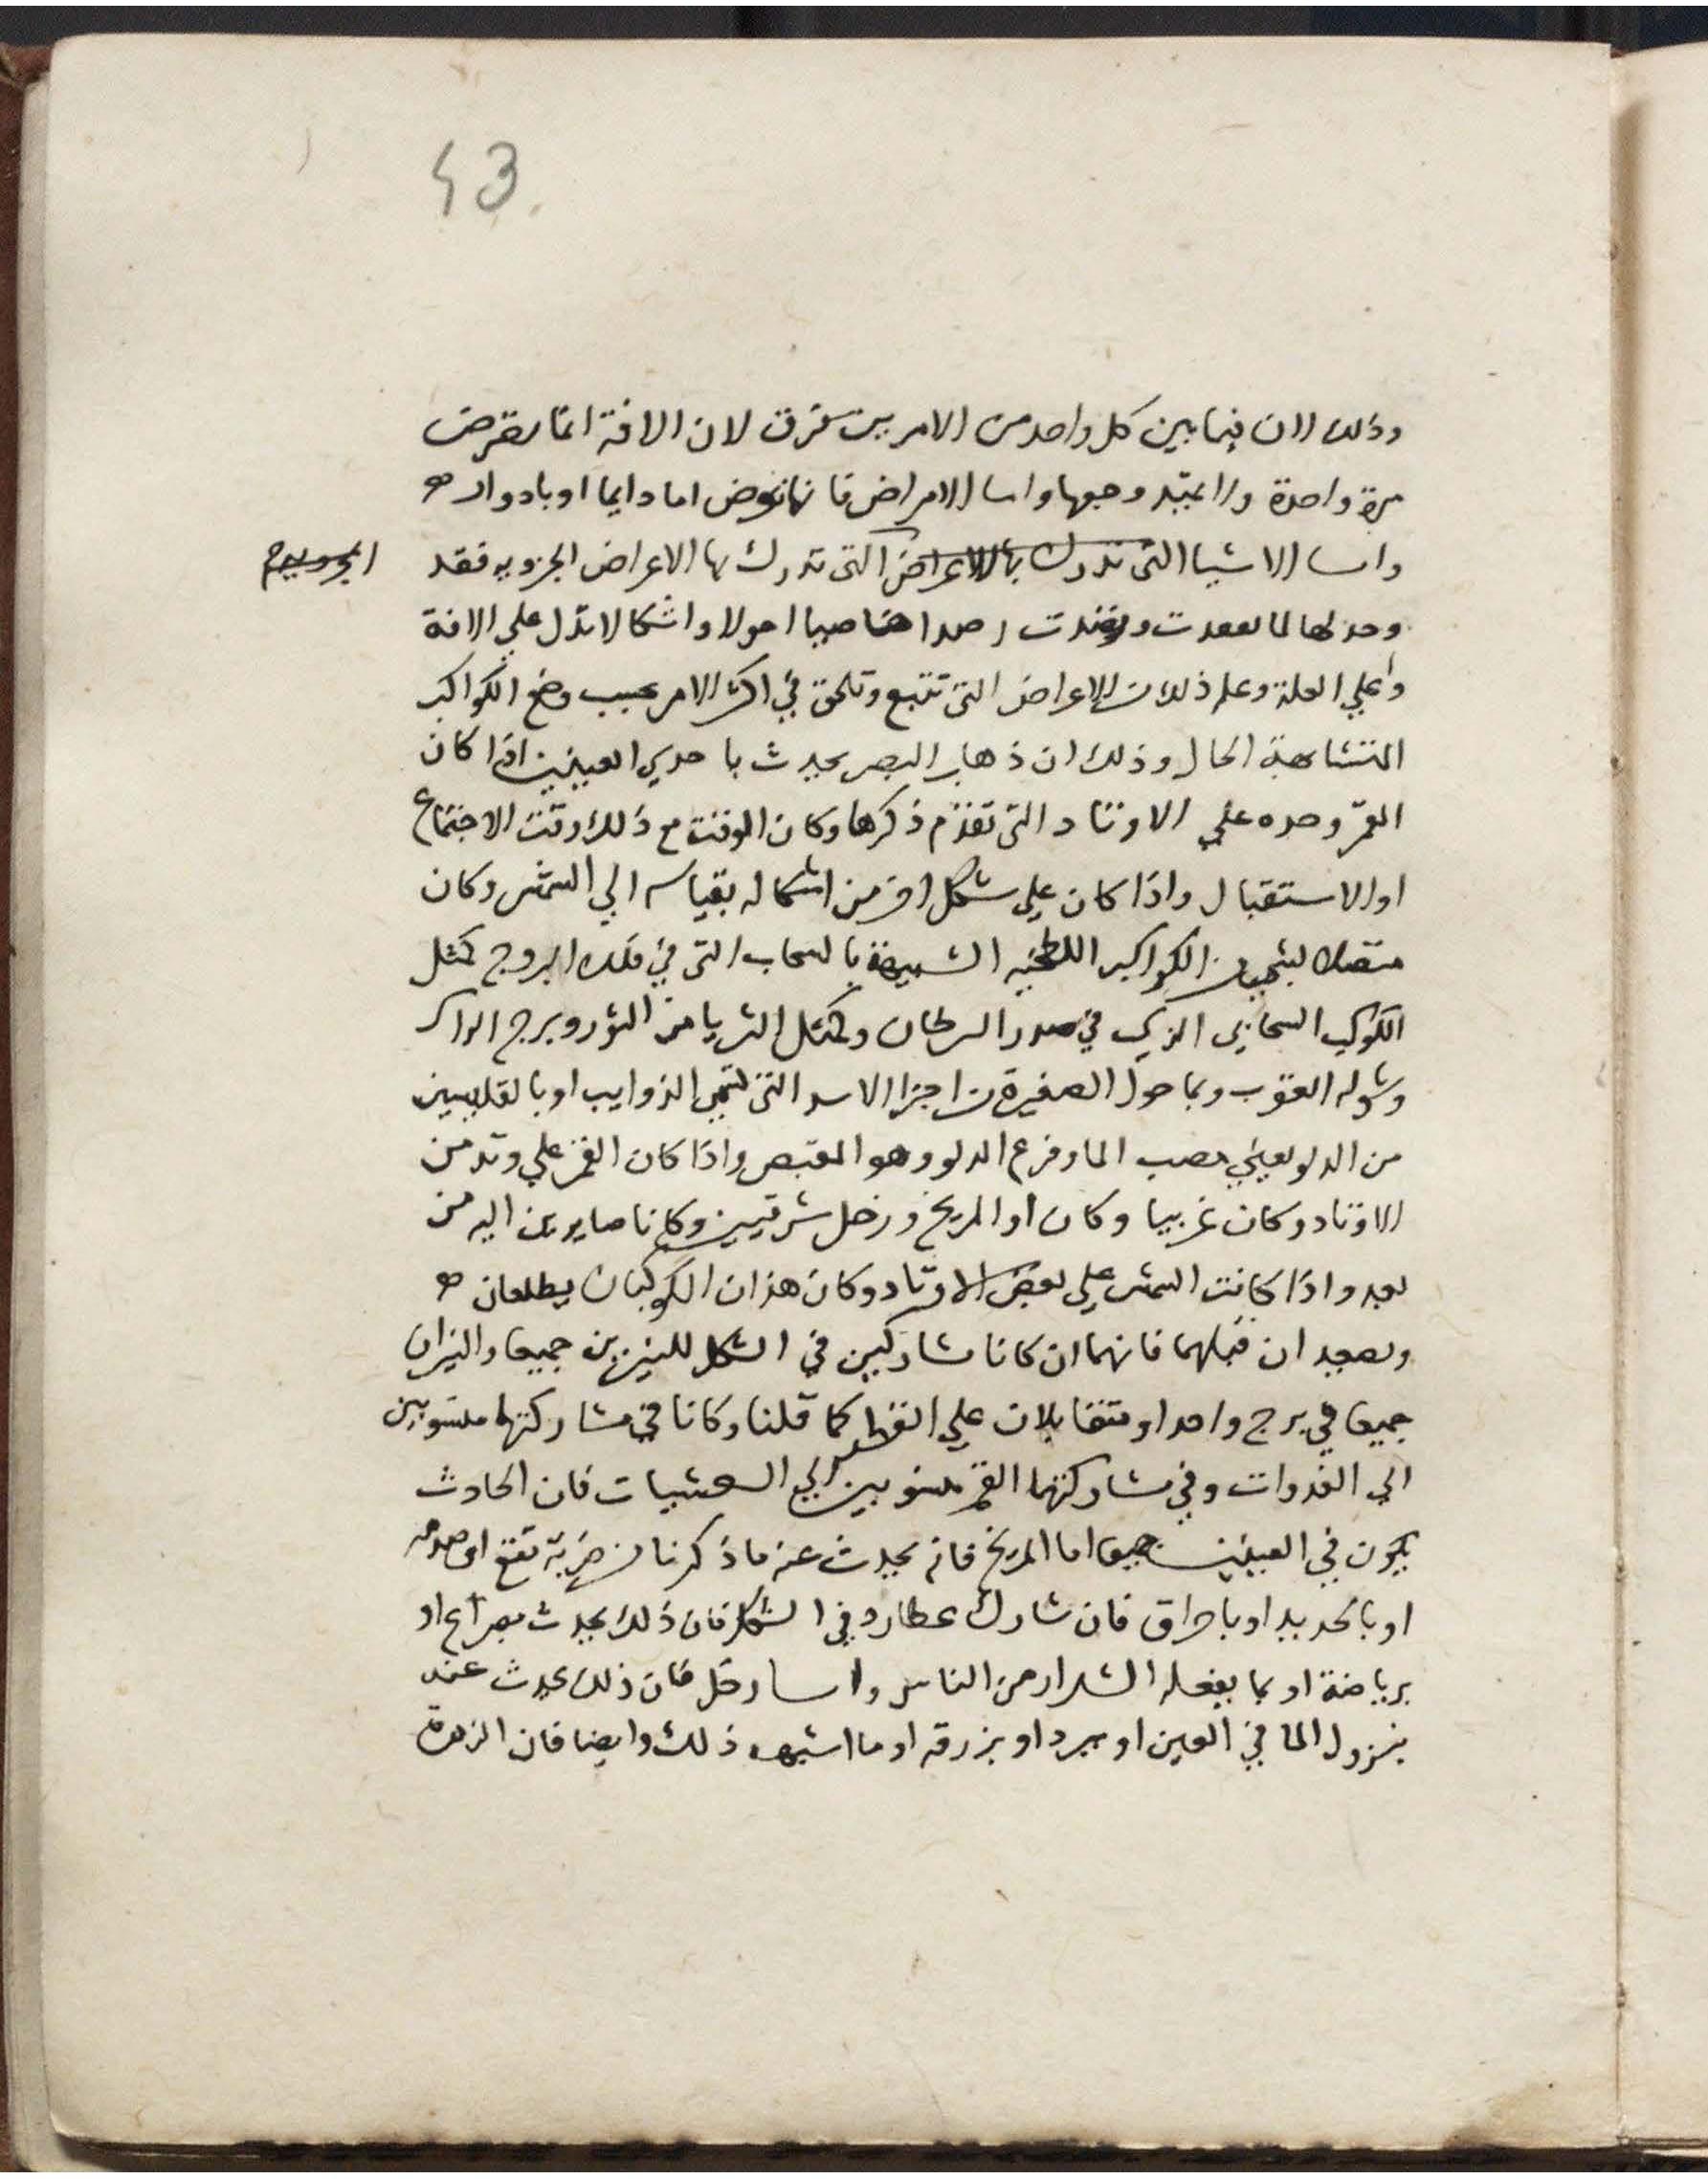 43
وذلك ان فيما بين كل واحد من الامرين فرق لان الافة انما تعرض
مرة واحدة ولا وجعها واما الامراض فانها تعرض اما دايما او بادوار
واما الاشيا التى تدرك بها الاعراض التى تدرك بها الاعراض الجزويه فقد
لها لما احولا واشكالا تدل على الافة
وعلي العلة وعلم ذلك من الاعراض التى تتبع وتلحق في اكثر الامر بحسب وضع الكواكب
المتشابهة الحال وذلك ان ذهاب البصر يحدث باحدي العينين اذا كان
القمر وحده علي الاوتاد التى تقدم ذكرها وكان الوقت مع ذلك وقت الاجتماع
او الاستقبال واذا كان علي شكل اخر من اشكاله بقياسه الي الشمس وكان
متصلا الكواكب اللطخيه الشبيهة بالسحاب التى في فلك البروج كمثل
الكوكب السحابي الذي في صدر السرطان وكمثل الثريا من الثور وبرج الرا
وشوله العقرب وبما حول الصغيرة من اجزا الاسد التى تسمي الذوايب او بالقلبين
من الدلو يعني مصب الما وفرع الدلو وهو واذا كان القمر علي وتد من
الاوتاد وكان غربيا وكان او المريخ وزحل شرقيين وكانا صايرين اليه من
بعد واذا كانت الشمس علي بعض الاوتاد وكان هذان الكوكبان يطلعان
ويصعدان قبلهما فانهما ان كانا مشاركين في الشكل للنيرين جميعا والنيران
جميعا في برج واحد او متقابلان علي القطر كما قلنا وكانا في مشاركتها منسوبين
الي الغدوات وفي مشاركتهما القمر منسوبين الي العشيات فان الحادث
يكون في العينين جميعا اما المريخ فانه يحدث عنه ما ذكرنا من ضربة تقع او صدمه
او بالحديد او باحراق فان شارك عطارد في الشكل فان ذلك يحدث بصراع او
برياضة او بما يفعله الشرار من الناس واما زحل فان ذلك يحدث عنه
بنزول الما في العين او ببرد او بزرقه او ما اشبه ذلك وايضا فان الزهرة